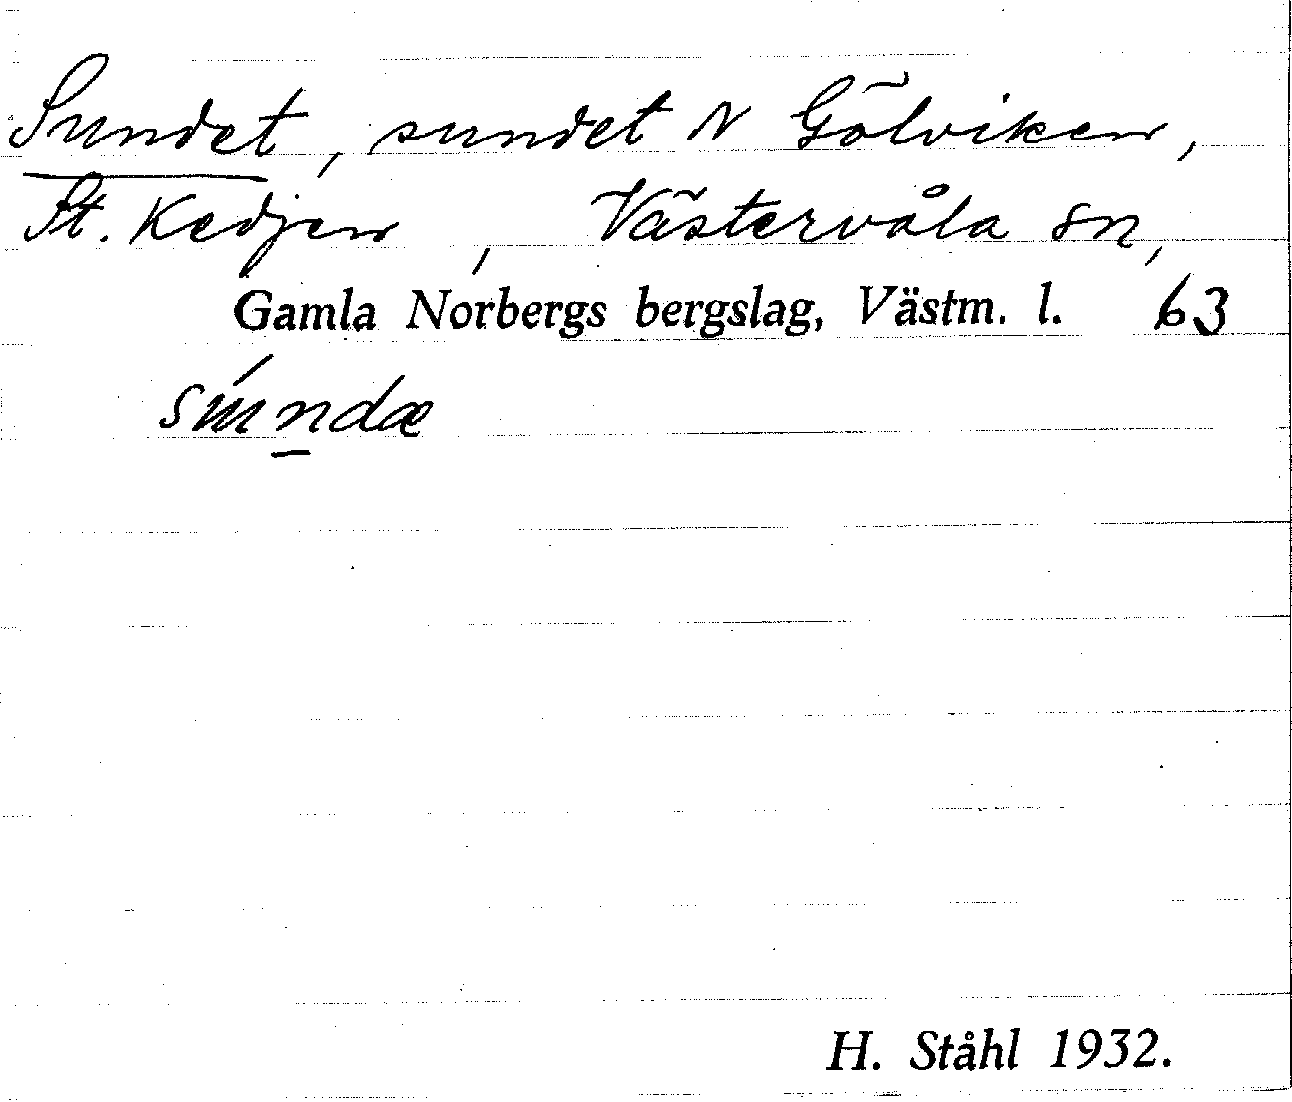 Sundet, sundet N Gölviken,
St. Kedjen, Västervåla sn,
Gamla Norbergs bergslag, Västm. l. 63
súndæ
H. Ståhl 1932.